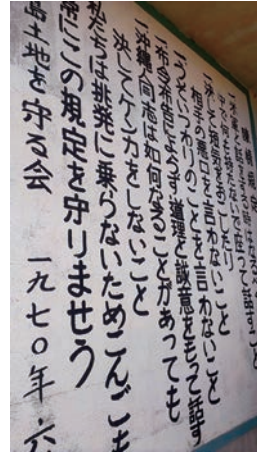 陳情規定
一決して短気をおこしたり
相手の悪口を言わないこと
一うそいつわりのことを言わないこと
一布令布告によらず道理と誠意を毛って話す
一沖縄人同志は如何なることがあっても
決してケンカをしないこと
私たちは挑発に乗らないためこんごも
常にこの規定を守りませう
島土地を守る会 一九七〇年 六